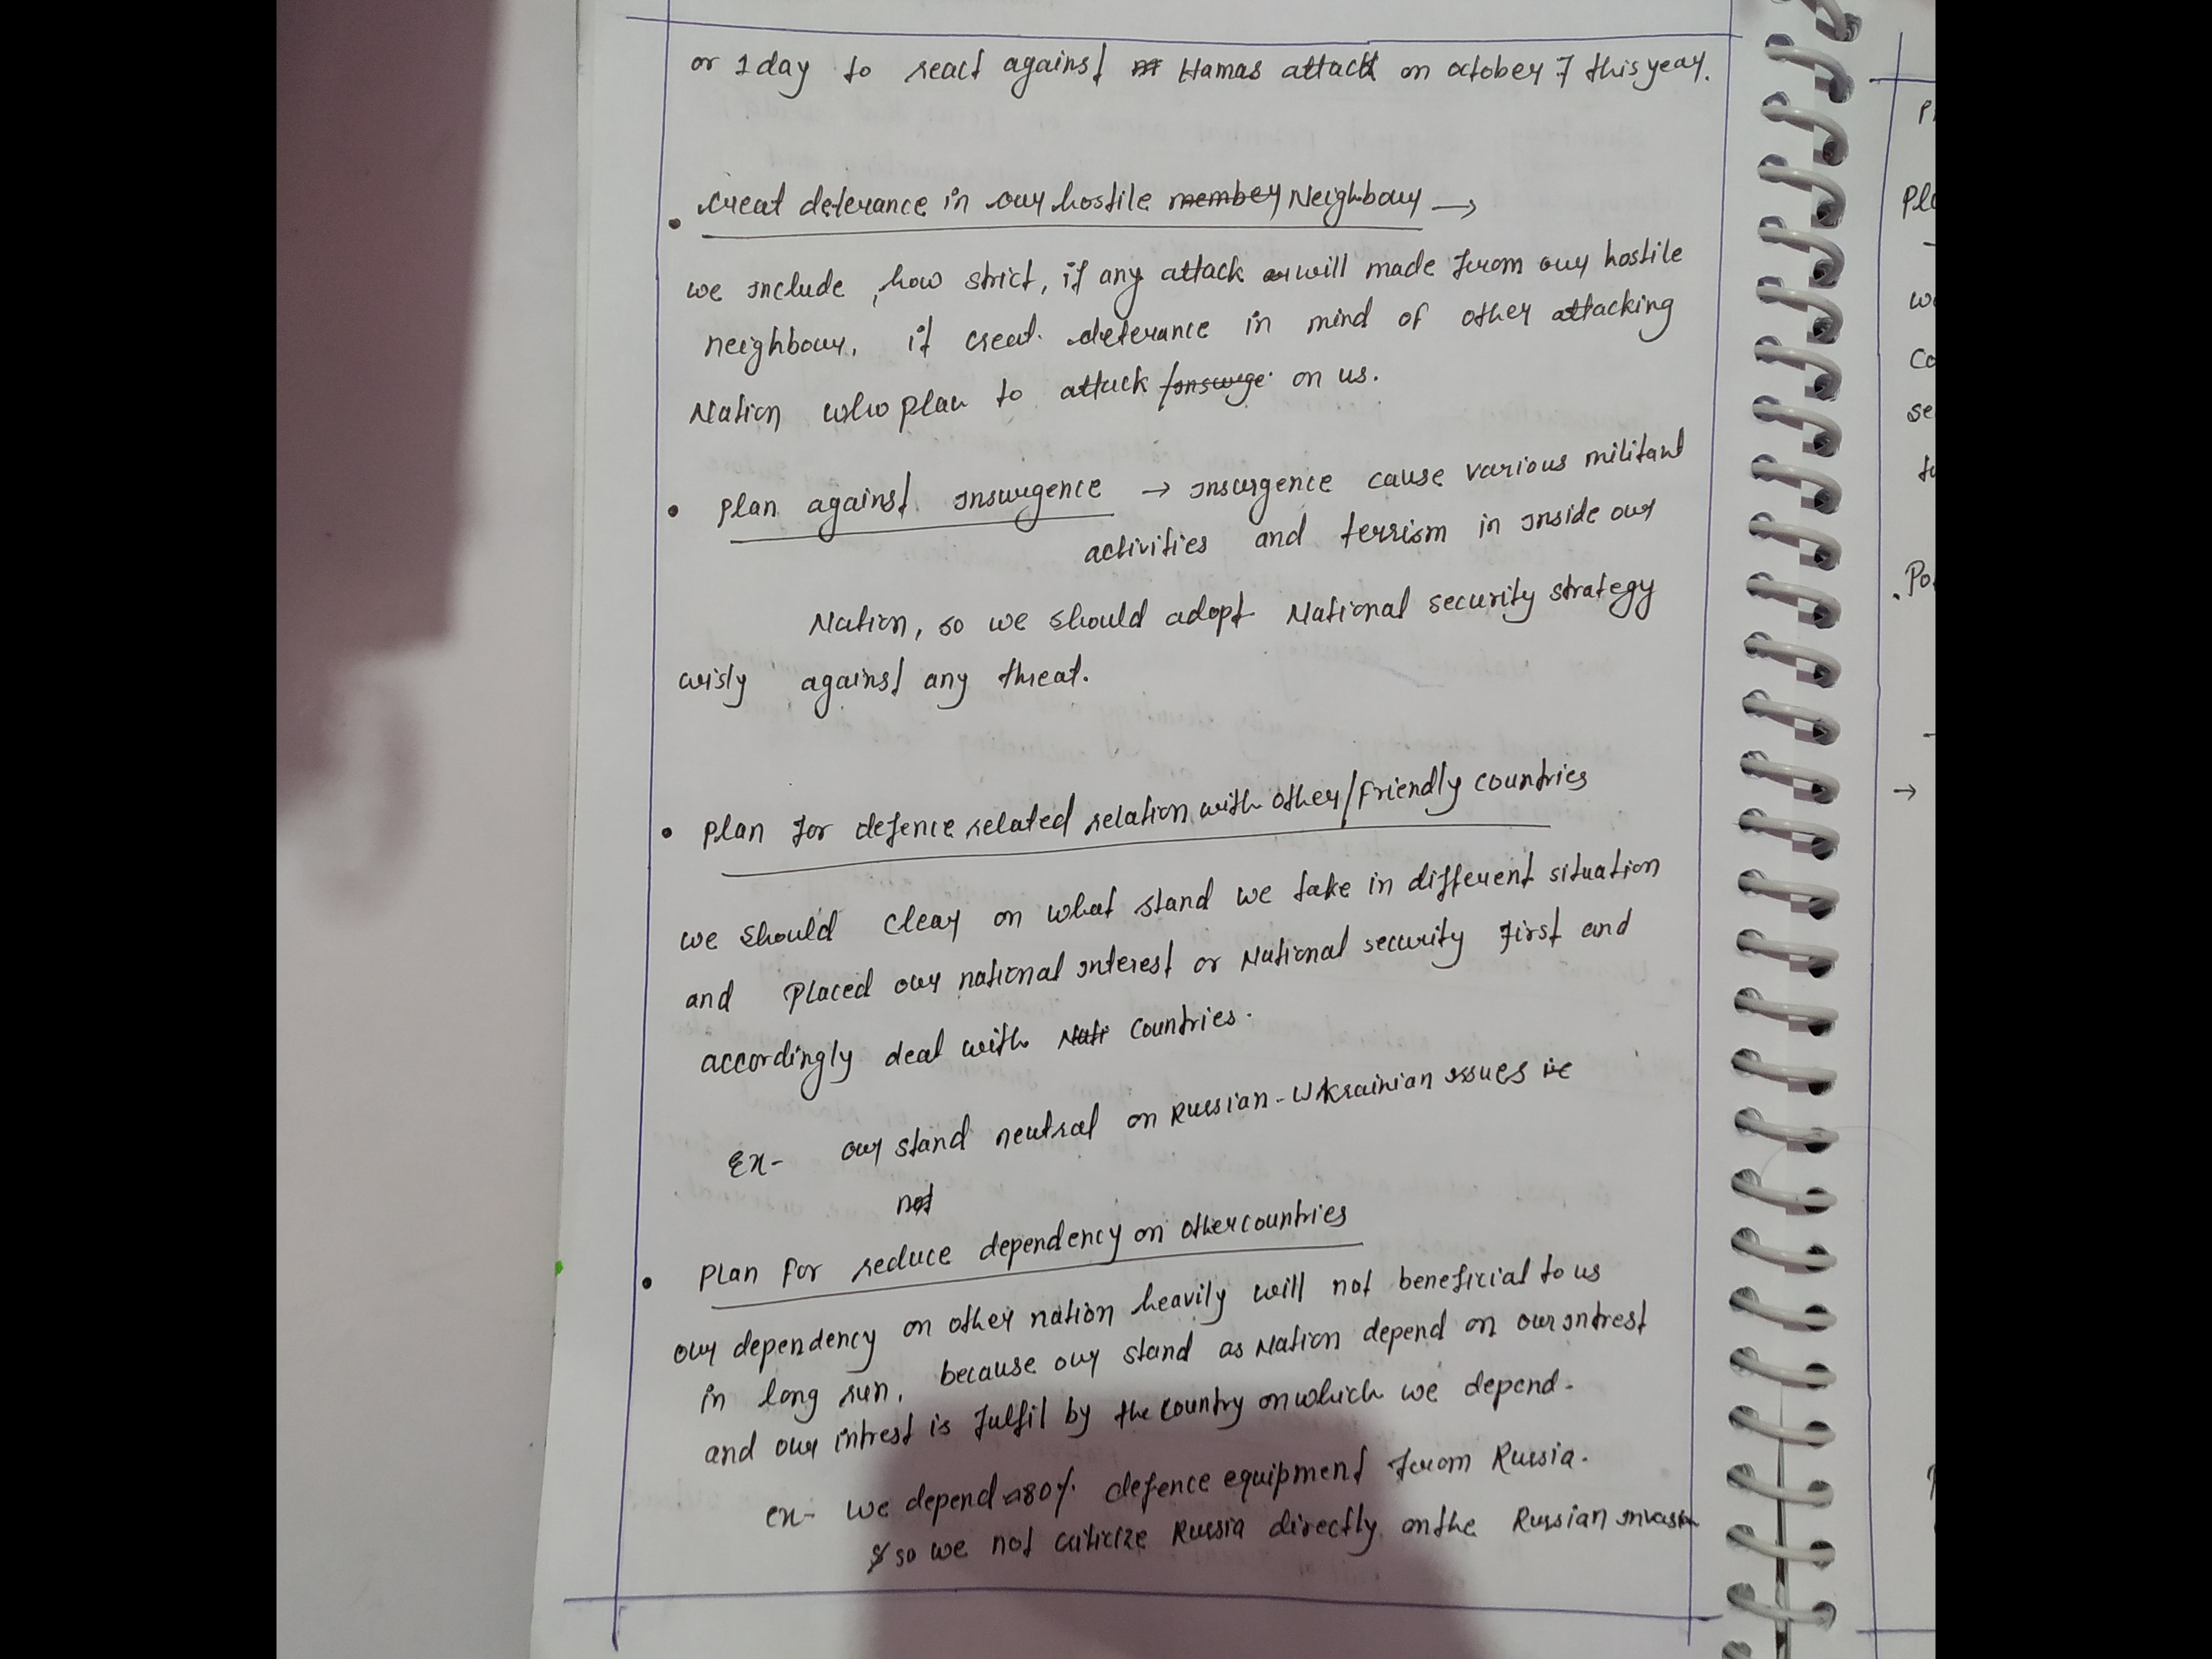 or 1 day to react against Hamas attack on october 7 this year.
• creat deterance in our hostile member Neighbour →
we include, how strict, if any attack will made from our hostile
neighbour, it creat deterance in mind of other attacking
Nation who plan to attack on us.
• plan against insurgence → insurgence cause various militant
activities and terrism in inside our
Nation, so we should adopt National security strategy
wisly against any threat.
• plan for defence related relation with other/friendly countries
we should clear on what stand we take in different situation
and placed our national interest or National security first and
accordingly deal with Nati countries.
Ex- our stand neutral on Russian-Ukrainian issues ie
not
• Plan for reduce dependency on other countries
our dependency on other nation heavily will not beneficial to us
in long run, because our stand as Nation depend on our intrest
and our intrest is fulfil by the country on which we depend.
ex- we depend 80% defence equipment from Russia.
so we not criticize Russia directly on the Russian invasion
Pl
wo
Co
se
• Po
→